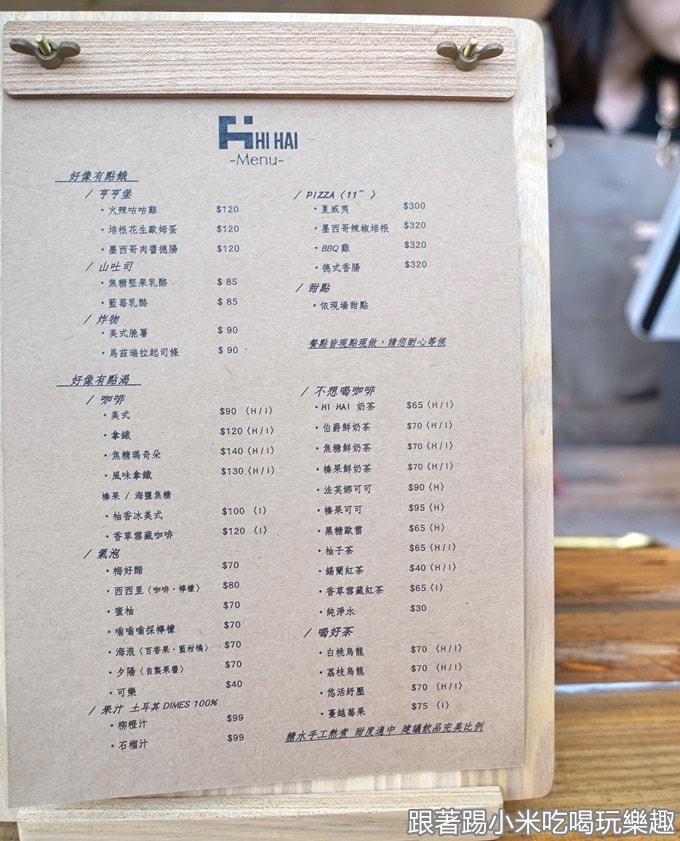 HI HAI
-Menu-
好像有點餓
/ 亨亨堡
・火辣咕咕雞 $120
・培根花生歐姆蛋 $120
・墨西哥肉醬德腸 $120
/ 山吐司
・焦糖堅果乳酪 $ 85
・藍莓乳酪 $ 85
/ 炸物
・美式脆薯 $ 90
・馬茲瑞拉起司條 $ 90
/ PIZZA〈11"〉
・夏威夷 $300
・墨西哥辣椒培根 $320
・BBQ 雞 $320
・德式香腸 $320
/ 甜點
・依現場甜點
餐點皆現點現做，請您耐心等候
好像有點渴
/ 咖啡
・美式 $90 〈H/I〉
・拿鐵 $120〈H/I〉
・焦糖瑪奇朵 $140〈H/I〉
・風味拿鐵 $130〈H/I〉
榛果 / 海鹽焦糖
・柚香冰美式 $100 〈I〉
・香草雪藏咖啡 $120 〈I〉
/ 氣泡
・梅好醋 $70
・西西里〈咖啡・檸檬〉 $80
・蜜柚 $70
・嗡嗡嗡採檸檬 $70
・海浪〈百香果・藍柑橘〉 $70
・夕陽〈自製果醬〉 $70
・可樂 $40
/ 果汁 土耳其 DIMES 100%
・柳橙汁 $99
・石榴汁 $99
/ 不想喝咖啡
・HI HAI 奶茶 $65〈H/I〉
・伯爵鮮奶茶 $70〈H/I〉
・焦糖鮮奶茶 $70〈H/I〉
・榛果鮮奶茶 $70〈H/I〉
・法芙娜可可 $90〈H〉
・榛果可可 $95〈H〉
・黑糖歐蕾 $65〈H〉
・柚子茶 $65〈H/I〉
・錫蘭紅茶 $40〈H/I〉
・香草雪藏紅茶 $65〈I〉
・純淨水 $30
/ 喝好茶
・白桃烏龍 $70 〈H/I〉
・荔枝烏龍 $70 〈H/I〉
・悠活紓壓 $70 〈H/I〉
・蔓越莓果 $75 〈I〉
糖水手工熬煮 甜度適中 建議飲品完美比例
跟著踢小米吃喝玩樂趣